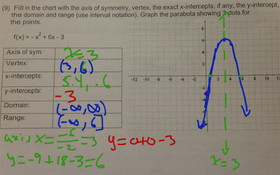 (9) Fill in the chart with the axis of symmetry, vertex, the exact x-intercepts, if any, the y-intercept,
the domain and range (use interval notation). Graph the parabola showing 3 pots for
the points.
f(x) = - x² + 6x - 3
Axis of sym: x = 3
Vertex: (3, 6)
x-intercepts: 5.4, .6
y-intercepts: -3
Domain: (-∞, ∞)
Range: (-∞, 6]
axis, x = -6/-2 = 3 y = 0+0-3
y = -9+18-3 = 6
x = 3